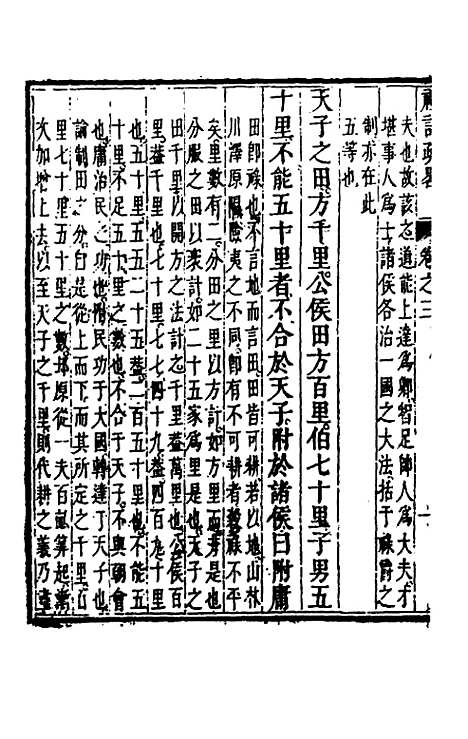 禮記疏畧 卷之三
夫也故該之道能上達爲卿智足帥人爲大夫才
堪事人爲士諸侯各治一國之大法括于祿爵之
制亦在此
五等也
天子之田方千里公侯田方百里伯七十里子男五
十里不能五十里者不合於天子附於諸侯曰附庸
田卽祿也不言地而言田田皆可耕若以地山林
川澤原隰險夷之不同卽有不可耕者祿不平
矣里數有二分田之里以方計如方里而井是也
分服之田以里計如二十五家爲里是也天子之
田千里以開方之法計之千里葢萬里也公侯百
里葢千里也七十里七七四十九葢四百九十里
也五十里五五二十五葢二百五十里也不能五
十里不足五十里之數也不合于天子不與朝會
也庸治民之功也附民功于大國轉達于天子也
論制田之分自是從上而下而其所定之千里百
里七十里五十里之數却原從一夫百畝算起漸
次加增上去以至天子之千里則代耕之義乃